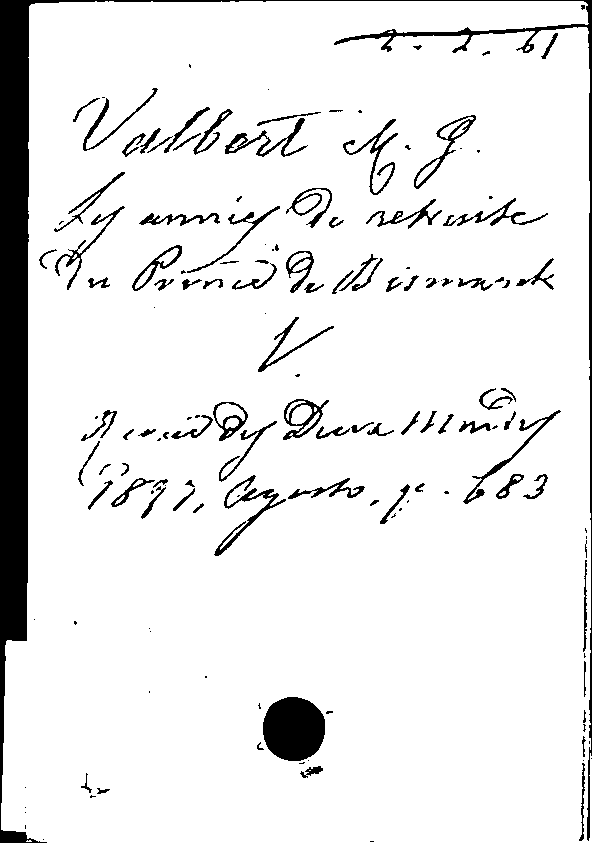 2. 2. 61
Valbert M. G.
Les années de retraite
du Prince de Bismarck
V.
Revue des Deux Mondes
1897, Agosto, p. 683